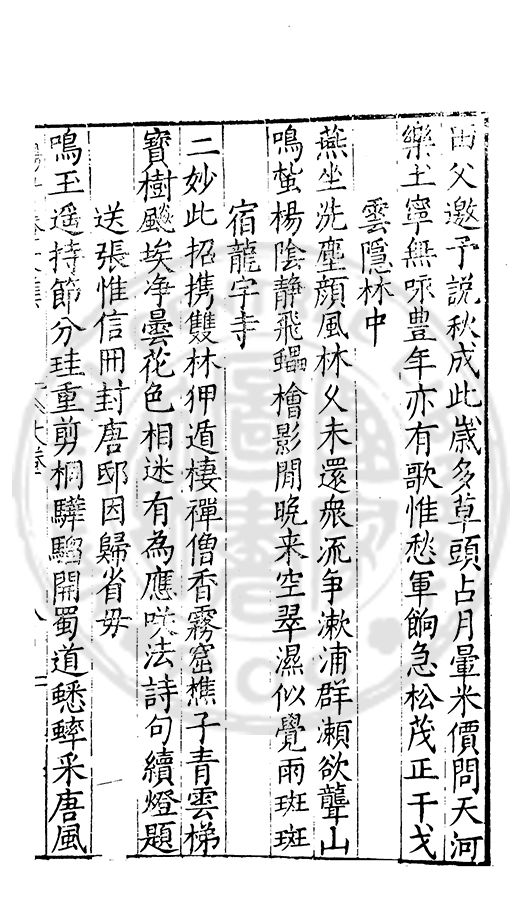 田父邀予說秋成此歲多草頭占月暈米價問天河
樂土寧無咏豊年亦有歌惟愁軍餉急松茂正干戈
雲隠林中
燕坐洗塵顔風林久未還衆流争漱浦群瀬欲聾山
鳴蜇楊陰静飛蝠檜影閒晩来空翠濕似覺雨斑斑
宿龍宇寺
二妙此招携雙林狎遁棲禪僧香霧窟樵子青雲梯
寳樹颷埃净曇花色相迷有為應咲法詩句續燈題
送張惟信冊封唐邸因歸省毋
鳴玉遥持節分珪重剪桐驊騮開蜀道蟋蟀采唐風